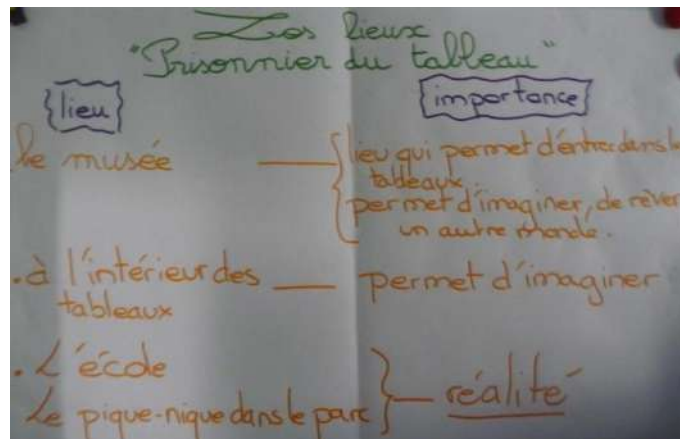 Les lieux
"Prisonnier du tableau"
lieu
importance
le musée
lieu qui permet d'entrer dans le
tableaux
permet d'imaginer, de rêver
un autre monde.
.à l'intérieur des
tableaux
permet d'imaginer
. L'école
Le pique-nique dans le parc
réalité